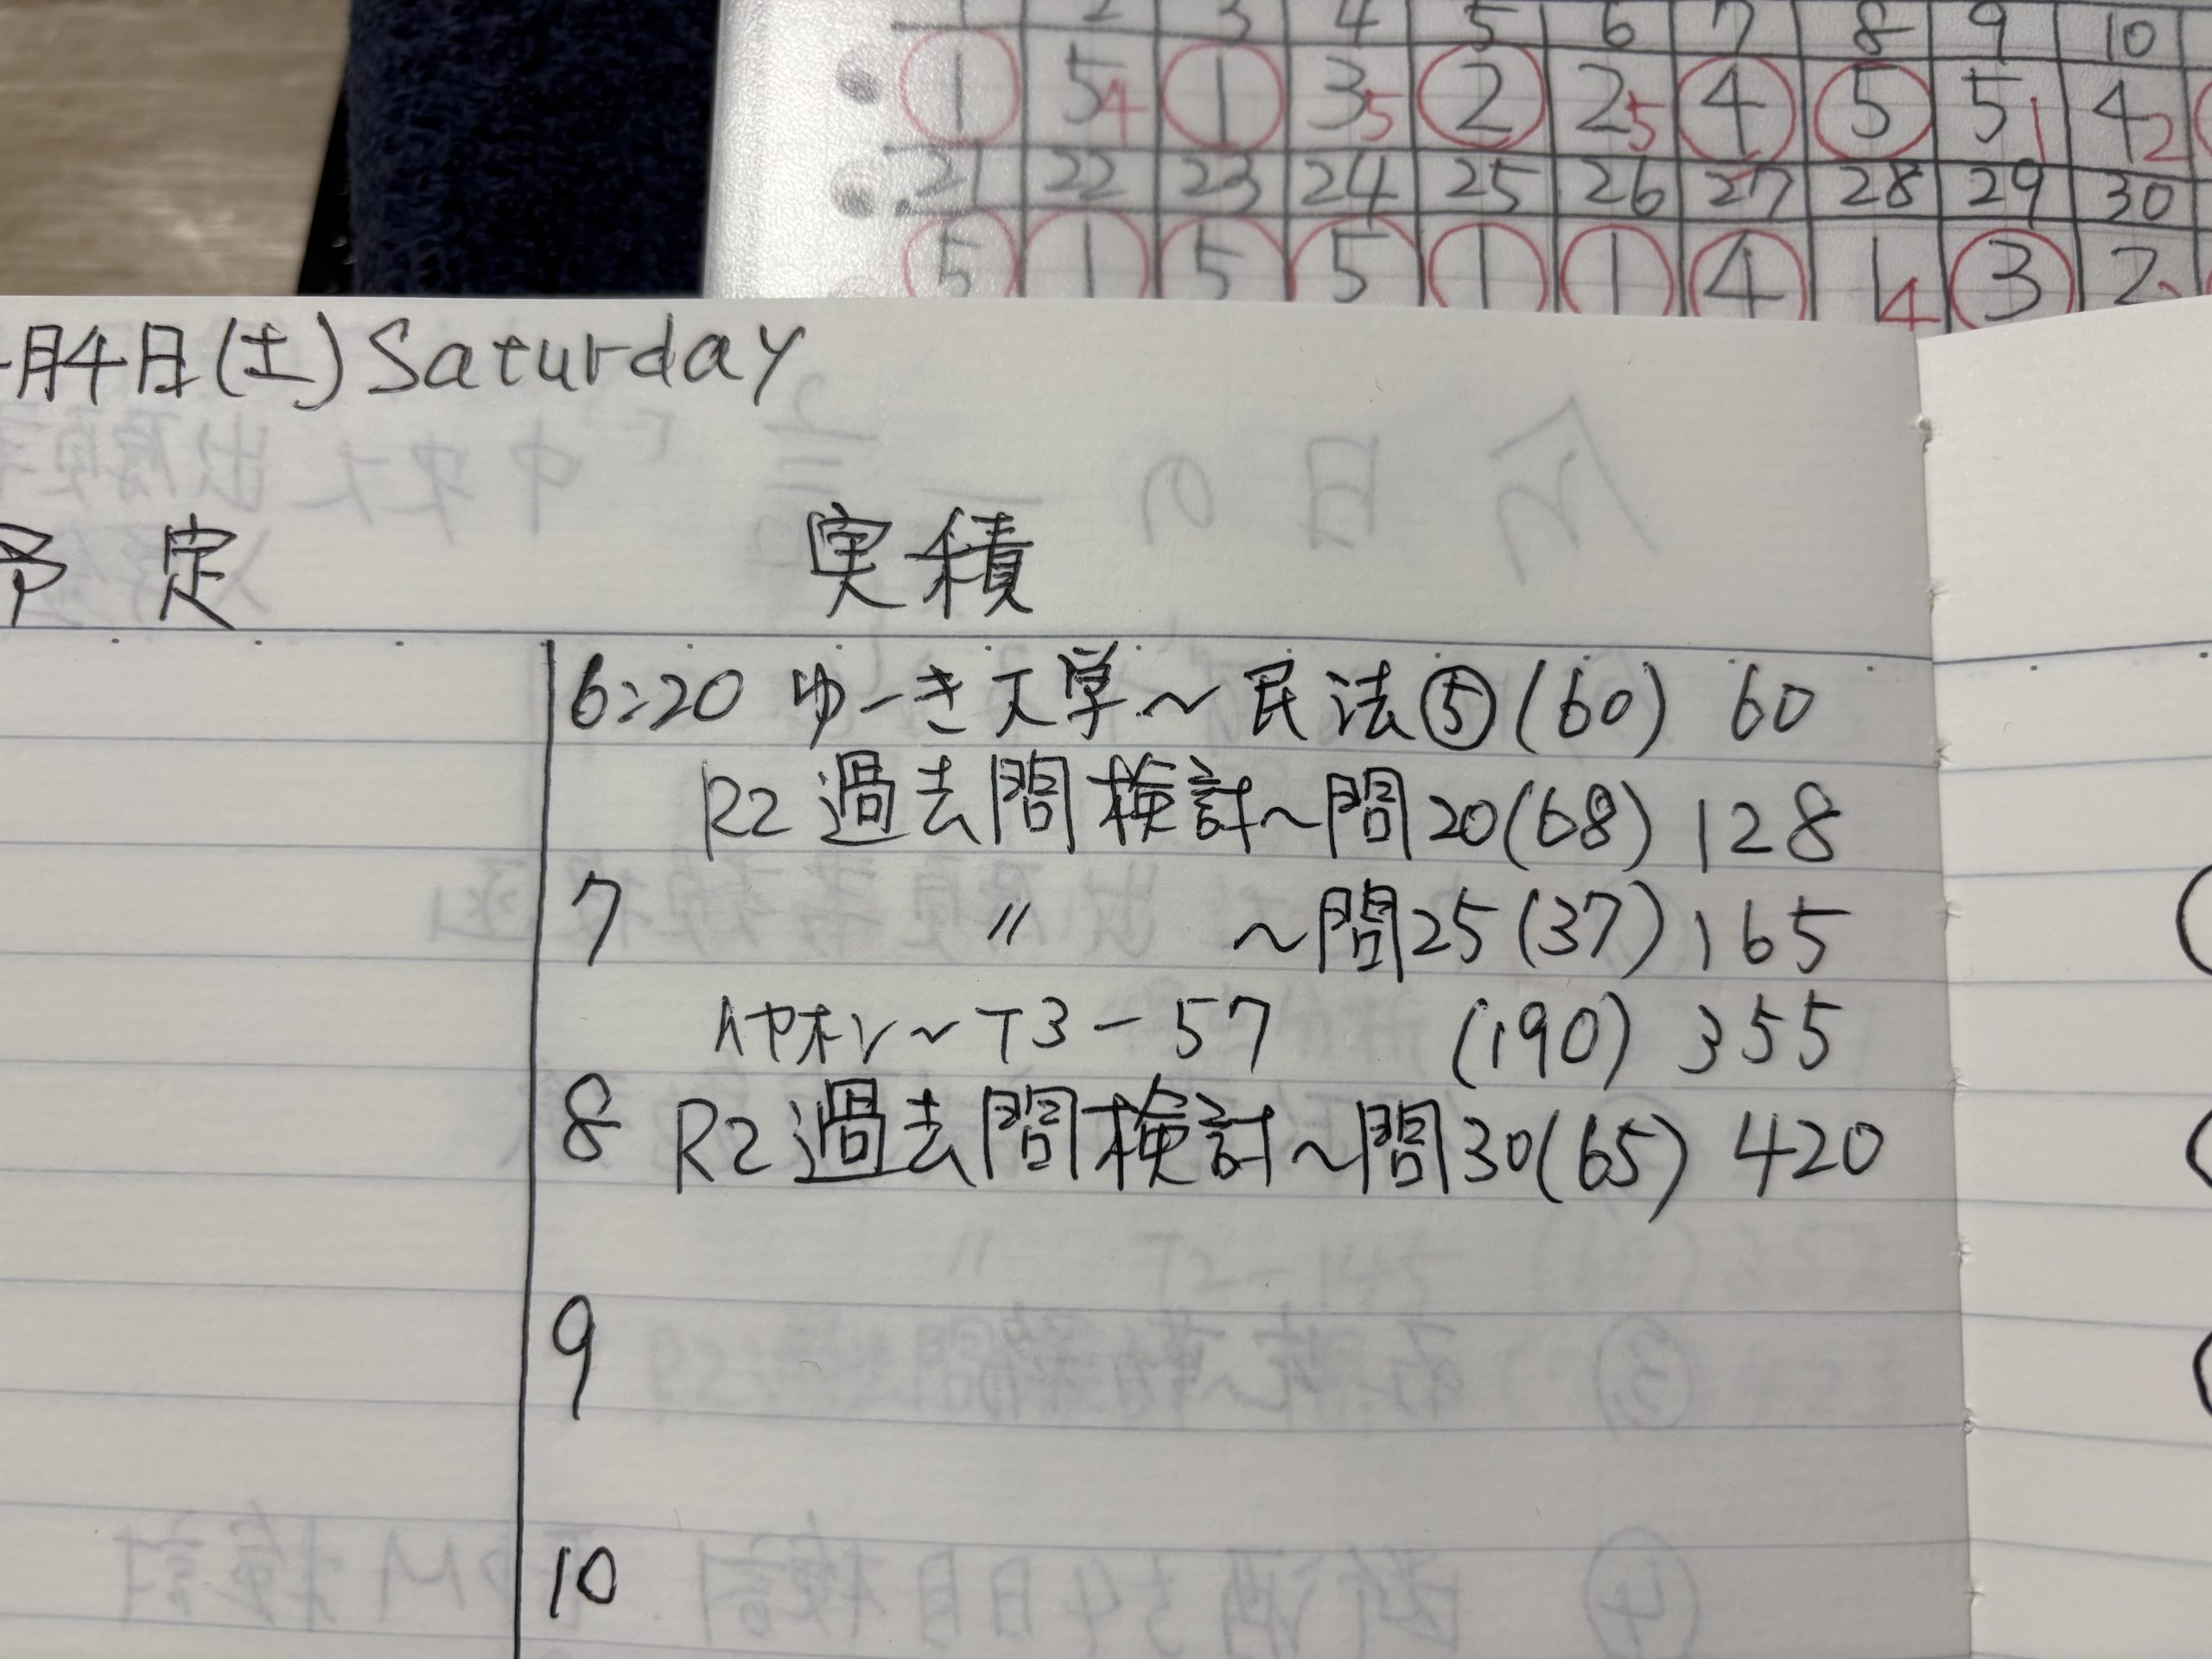 1 2 3 4 5 6 7 8 9 10
1 5 4 1 3 5 2 2 5 4 5 5 1 4 2
21 22 23 24 25 26 27 28 29 30
5 1 5 5 1 1 4 1 4 3 2
月4日(土) Saturday
予定 実積
6:20 ゆーき大学~民法⑤(60) 60
R2過去問検討~問20(68) 128
7 〃 ~問25(37) 165
イヤホン~T3-57 (190) 355
8 R2過去問検討~問30(65) 420
9
10